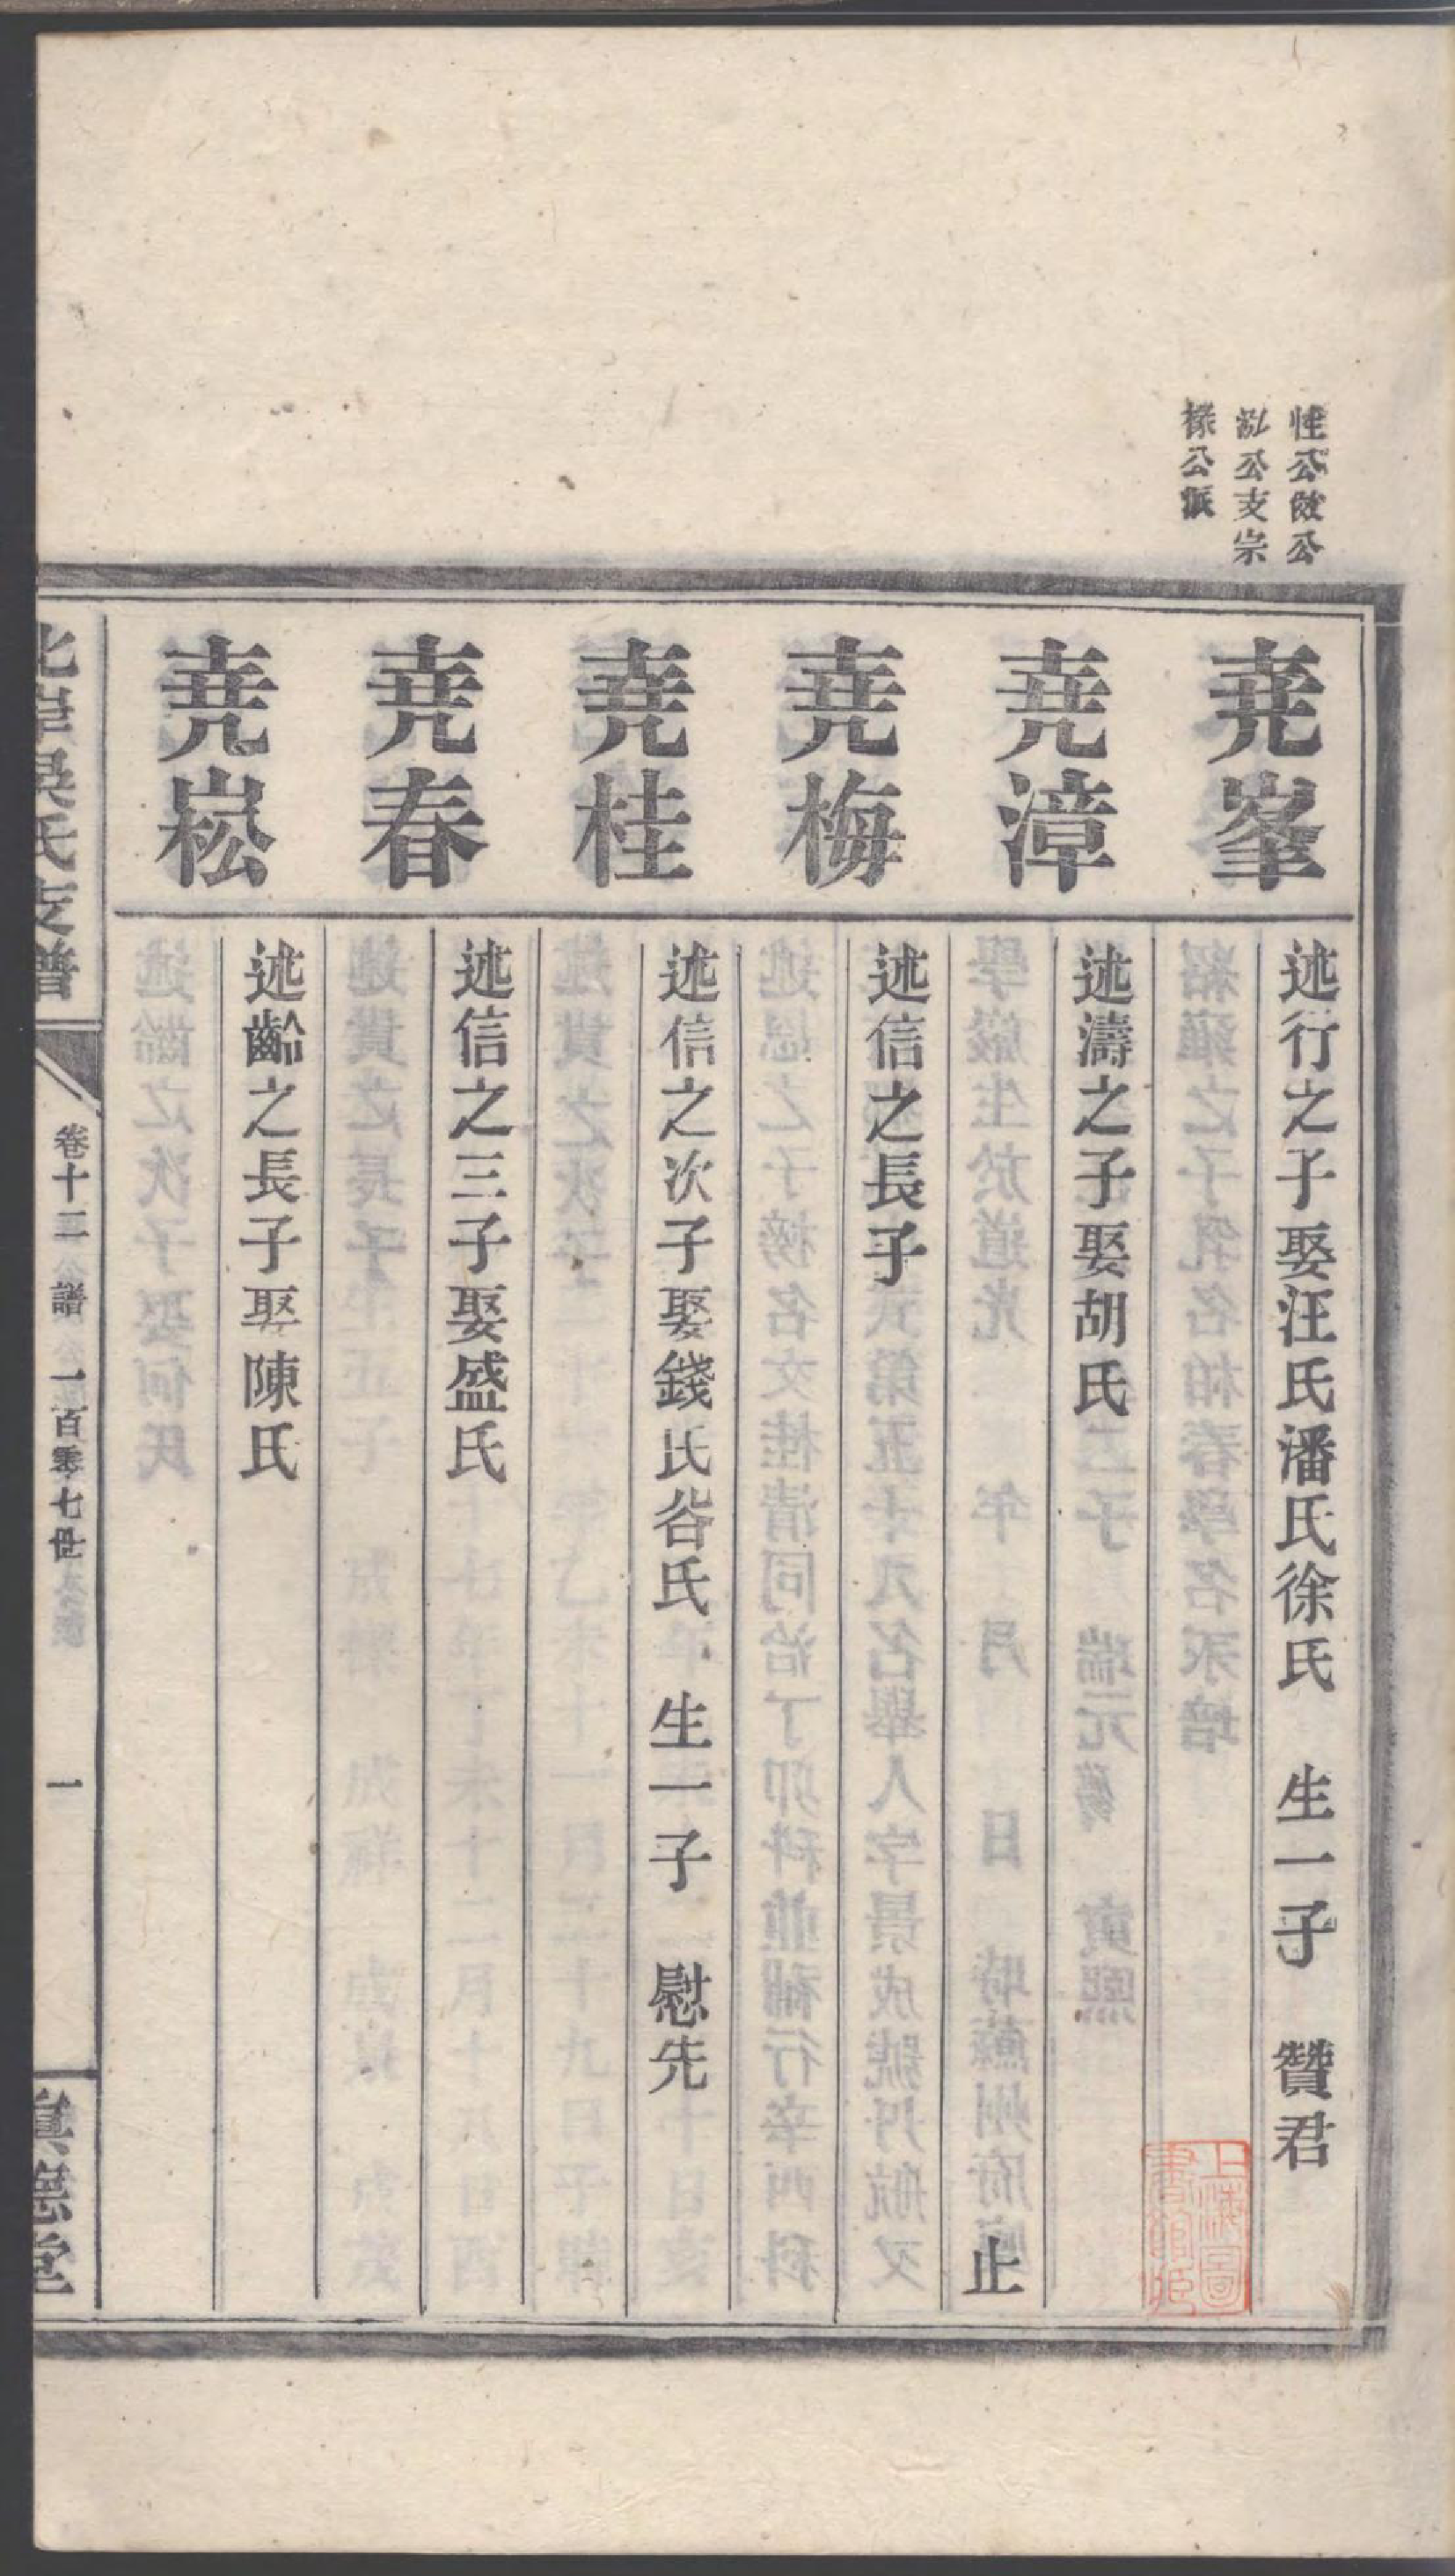 性公啟公
泓公支宗
祿公派
堯峯
述行之子娶汪氏潘氏徐氏　生一子　贊君
堯漳
述濤之子娶胡氏
止
堯梅
述信之長子
堯桂
述信之次子娶錢氏谷氏　生一子　慰先
堯春
述信之三子娶盛氏
堯崧
述齡之長子娶陳氏
北岸吳氏支譜
卷十二　譜　一百零七世
一
眞應堂
上海圖書館